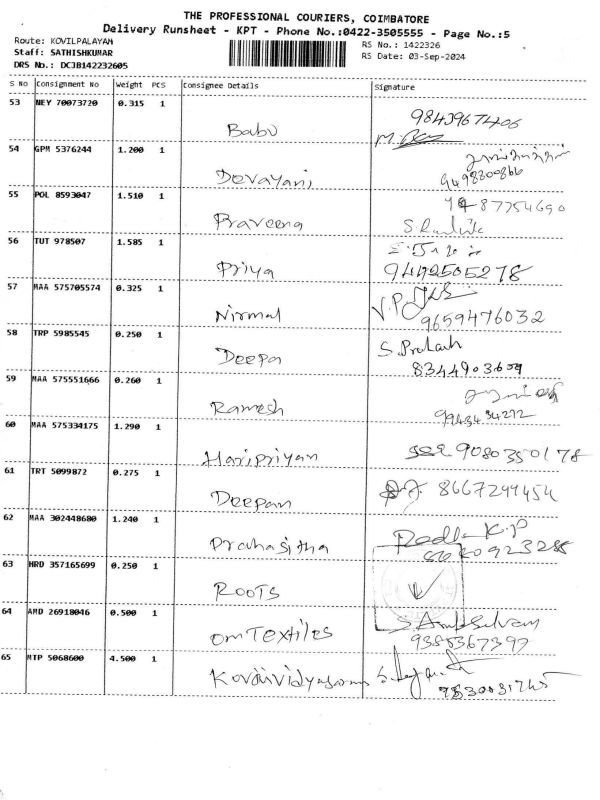 THE PROFESSIONAL COURIERS, COIMBATORE
Delivery Runsheet - KPT - Phone No.:0422-3505555 - Page No.:5
Route: KOVILPALAYAM RS No.: 1422326
Staff: SATHISHKUMAR RS Date: 03-Sep-2024
DRS No.: DCJB142232605
S No Consignment No Weight PCS Consignee Details Signature
53 NEY 70073720 0.315 1
Babu 9843967406
54 GPM 5376244 1.200 1
Devayani 9498800866
55 POL 8593047 1.510 1
Praveena
56 TUT 978507 1.585 1
Priya 9442505278
57 MAA 575705574 0.325 1
Nirmal V.P
9659476032
58 TRP 5985545 0.250 1 S. Prakash
Deepa
59 MAA 575551666 0.260 1
Ramesh
60 MAA 575334175 1.290 1
Haripriyan 9080350178
61 TRT 5099872 0.275 1
Deepan 8667299454
62 MAA 302448680 1.240 1
Prahasitha K.P
63 HRD 357165699 0.250 1
ROOTS
64 AMD 26918046 0.500 1
om Textiles 9385367397
65 MTP 5068600 4.500 1